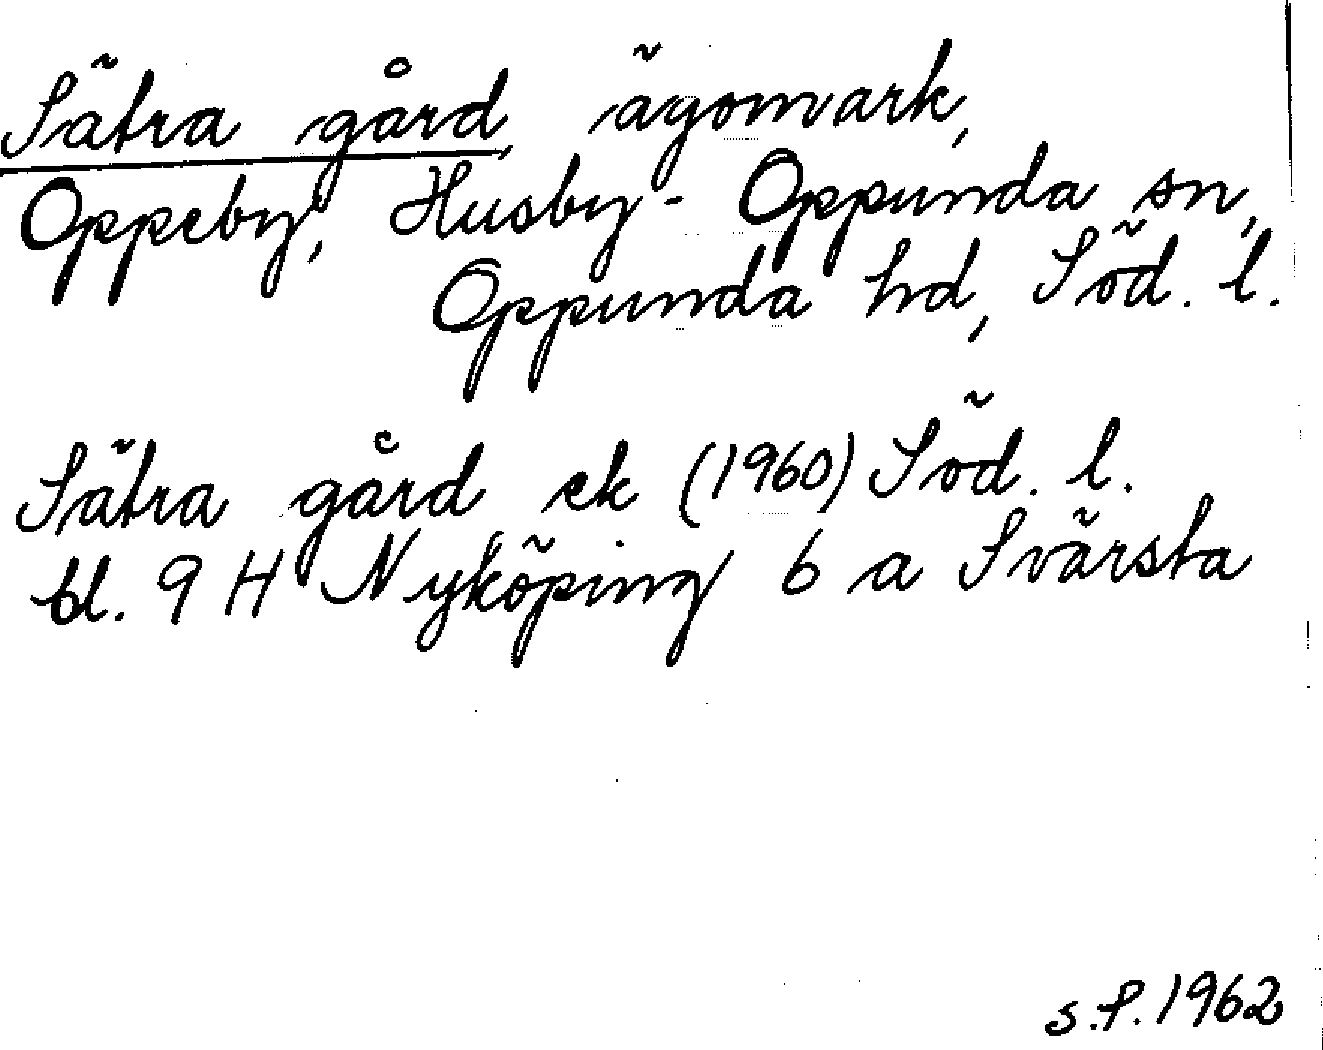 Sätra gård, ägomark,
Oppeby, Husby-Oppunda sn,
Oppunda hd, Söd. l.
Sätra gård ek (1960) Söd. l.
bl. 9 H Nyköping 6 a Svärsta
s.f. 1962